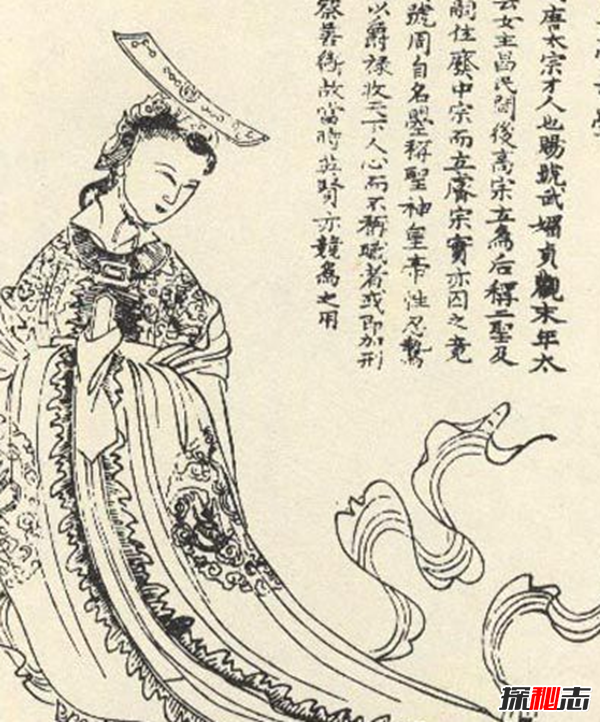 唐太宗才人也賜號武媚貞觀末年太
云女主昌民間後高宗立為后稱二聖及
嗣位廢中宗而立睿宗實亦囚之竟
號周自名曌稱聖神皇帝性忍鷙
以爵祿收天下人心而不稱職者或即加刑
故當時英賢亦競為之用
探秘志